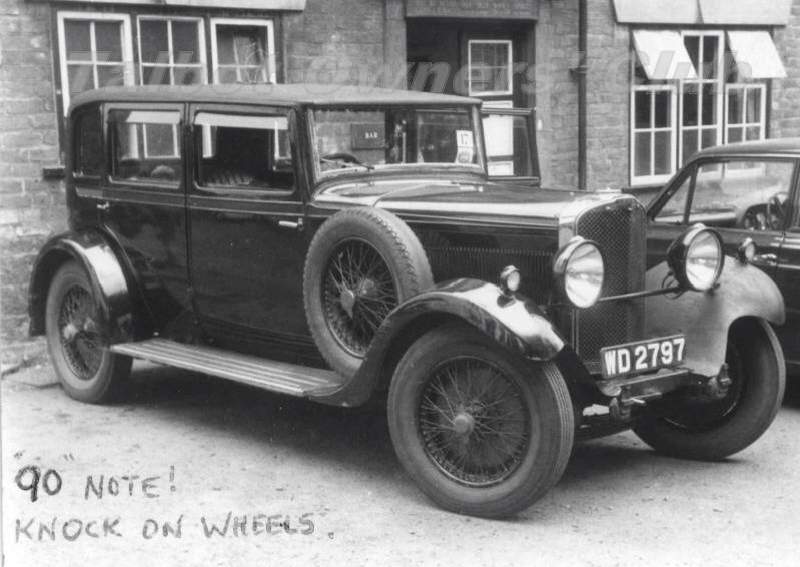 Talbot Owners' Club
BAR
17
WD 2797
"90" NOTE!
KNOCK ON WHEELS.